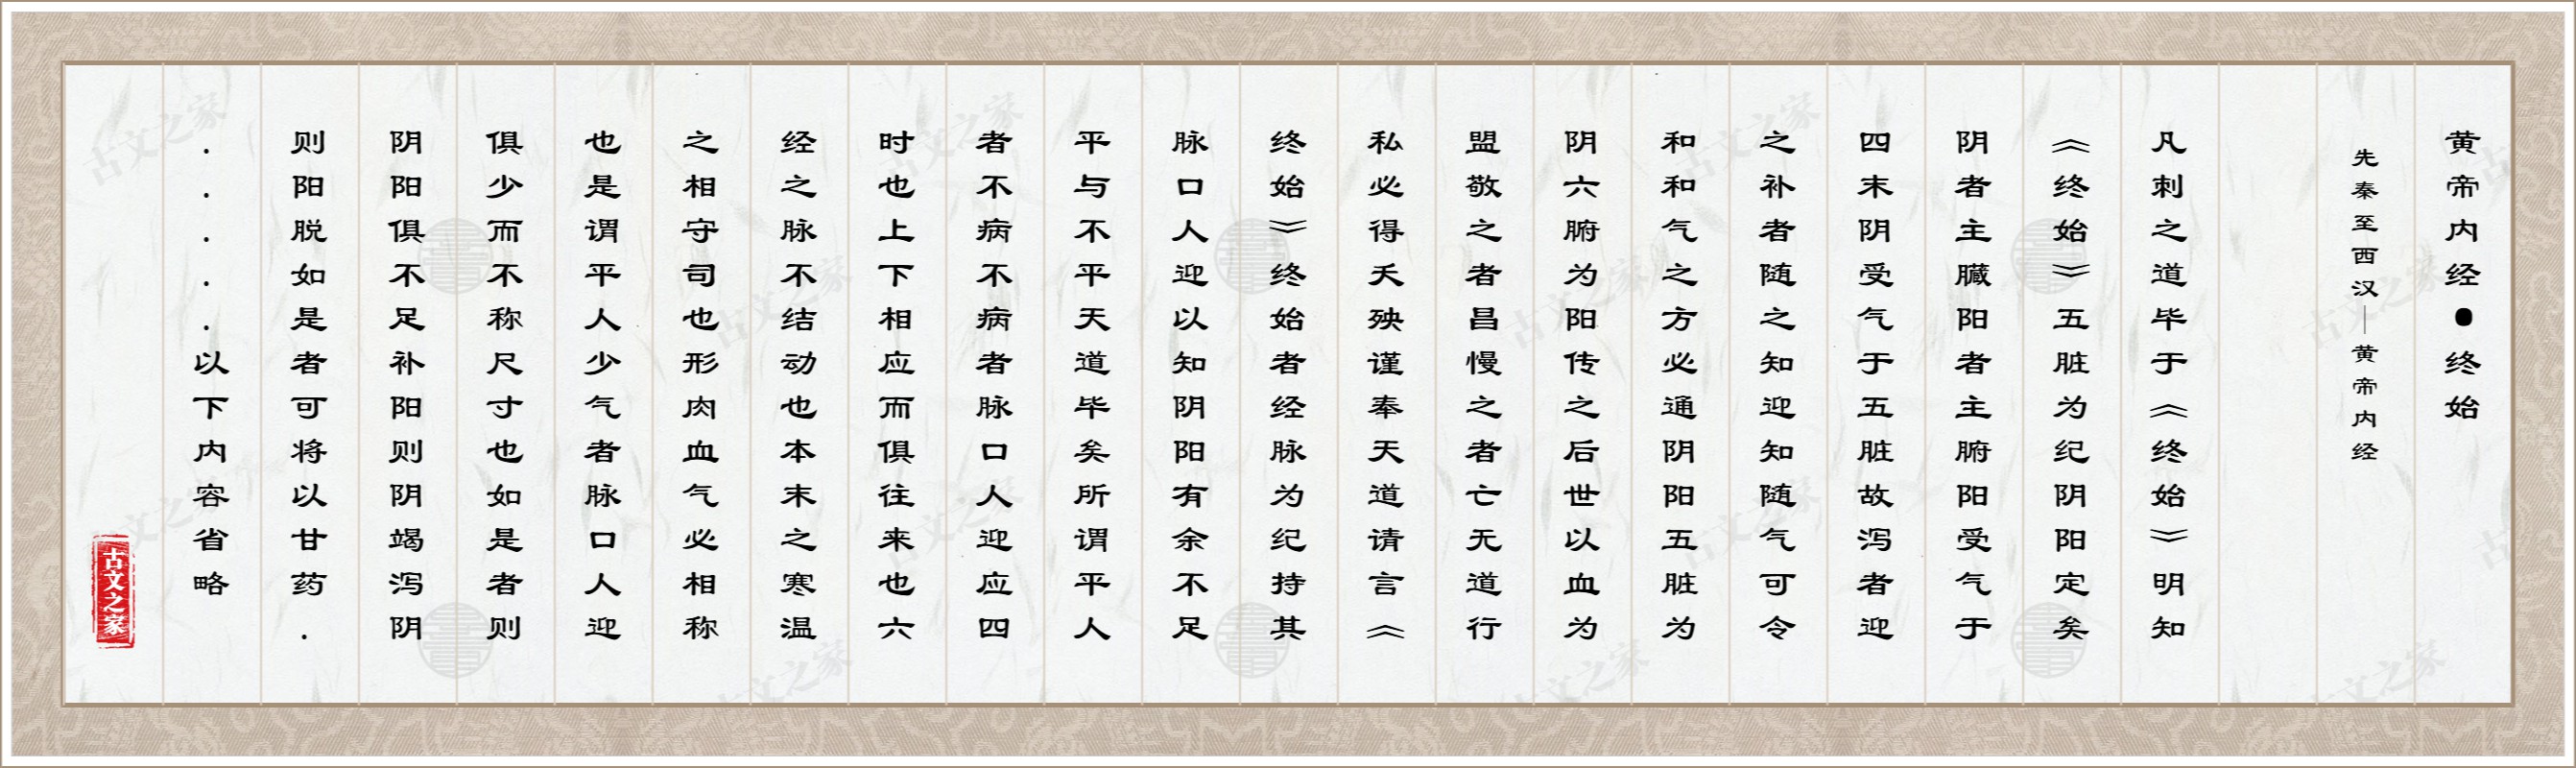 黄帝内经●终始
先秦至西汉|黄帝内经
凡刺之道毕于《终始》明知
《终始》五脏为纪阴阳定矣
阴者主臓阳者主腑阳受气于
四末阴受气于五脏故泻者迎
之补者随之知迎知随气可令
和和气之方必通阴阳五脏为
阴六腑为阳传之后世以血为
盟敬之者昌慢之者亡无道行
私必得夭殃谨奉天道请言《
终始》终始者经脉为纪持其
脉口人迎以知阴阳有余不足
平与不平天道毕矣所谓平人
者不病不病者脉口人迎应四
时也上下相应而俱往来也六
经之脉不结动也本末之寒温
之相守司也形肉血气必相称
也是谓平人少气者脉口人迎
俱少而不称尺寸也如是者则
阴阳俱不足补阳则阴竭泻阴
则阳脱如是者可将以甘药.
.....以下内容省略
古文之家